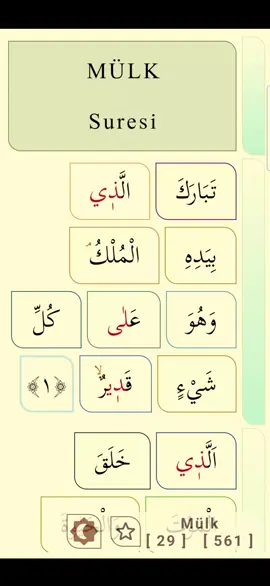 MÜLK
Suresi
تَبَارَكَ الَّذ۪ي
بِيَدِهِ الْمُلْكُۘ
وَهُوَ عَلٰى كُلِّ
شَيْءٍ قَد۪يرٌۙ ﴿١﴾
اَلَّذ۪ي خَلَقَ
Mülk
[ 29 ] [ 561 ]